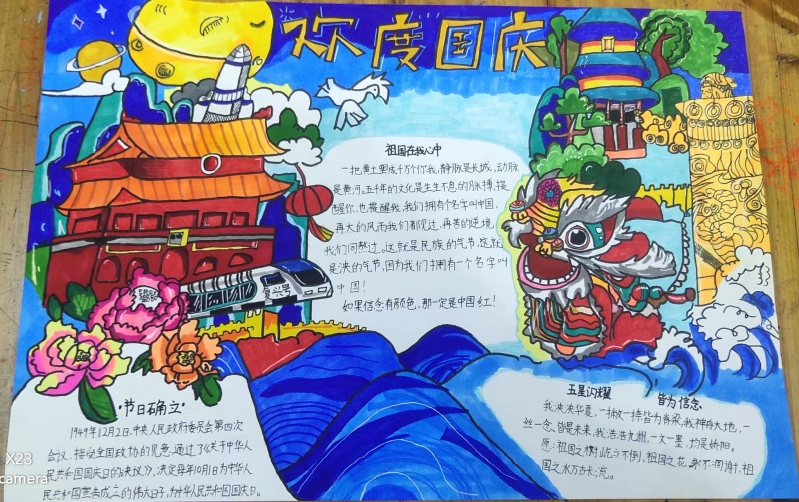 欢度国庆
祖国在我心中
一把黄土塑成千万个你我,静脉是长城,动脉
是黄河,五千年的文化是生生不息的脉搏,提
醒你,也提醒我,我们拥有个名字叫中国,
再大的风雨我们都见过,再苦的逆境
我们同熬过,这就是民族的气节,这就
是泱的气节,因为我们拥有一个名字叫
中国!
如果信念有颜色,那一定是中国红!
复兴号
"节日确立"
1949年12月2日,中央人民政府委员会第四次
会议,接受全国政协的建议,通过了《关于中华人
民共和国国庆日的决议》,决定每年10月1日为中华人
民共和国宣告成立的伟大日子,为中华人民共和国国庆日。
五星闪耀 皆为信念
我泱泱华夏,一撇一捺皆为脊梁,我神舟大地,一
丝一念,皆是未来,我浩浩九洲,一文一墨,均是骄阳。
愿:祖国之树,屹立不倒,祖国之花,永不凋谢,祖
国之水万古长流。
X23
camera